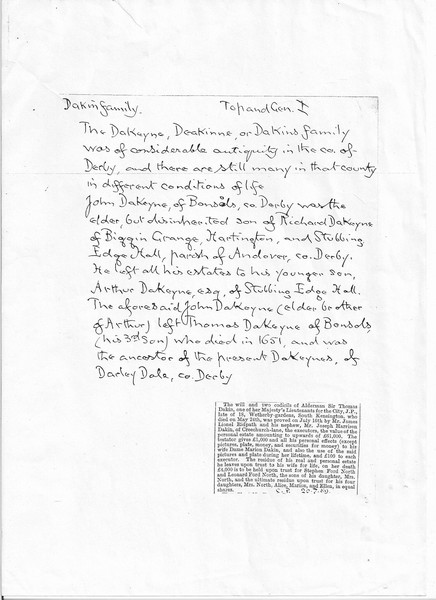 Dakin family. Top and Gen. I
The Dakeyne, Deakinne, or Dakins family
was of considerable antiquity in the co. of
Derby, and there are still many in that county
in different conditions of life
John Dakeyne, of Bonsols, co. Derby was the
elder, but disinherited son of Richard Dakeyne
of Biggin Grange, Hartington, and Stubbing
Edge Hall, parish of Andover, co. Derby.
He left all his estates to his younger son,
Arthur Dakeyne, esq, of Stubbing Edge Hall.
The aforesaid John Dakeyne (elder brother
of Arthur) left Thomas Dakeyne of Bonsols,
(his 3rd Son) who died in 1651, and was
the ancestor of the present Dakeynes, of
Darley Dale, co. Derby
The will and two codicils of Alderman Sir Thomas
Dakin, one of her Majesty's Lieutenants for the City, J.P.,
late of 18, Wetherby-gardens, South Kensington, who
died on May 24th, was proved on July 10th by Mr. James
Lionel Ridpath and his nephew, Mr. Joseph Harrison
Dakin, of Creechurch-lane, the executors, the value of the
personal estate amounting to upwards of £61,000. The
testator gives £1,000 and all his personal effects (except
pictures, plate, money, and securities for money) to his
wife Dame Marion Dakin, and also the use of the said
pictures and plate during her lifetime, and £100 to each
executor. The residue of his real and personal estate
he leaves upon trust to his wife for life, on her death
£4,000 is to be held upon trust for Stephen Food North
and Leonard Ford North, the sons of his daughter, Mrs.
North, and the ultimate residue upon trust for his four
daughters, Mrs. North, Alice, Marion, and Ellen, in equal
shares. 20.7.89